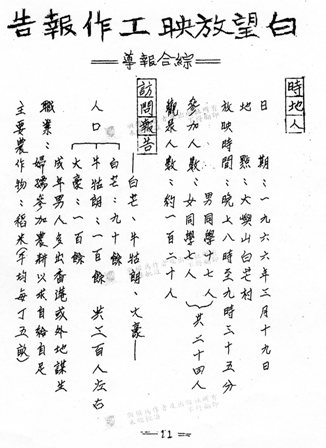 白望放映工作報告
綜合報導
時地人
日　　期：一九六六年三月十九日
地　　點：大嶼山白芒村
放映時間：晚上八時至九時三十五分
參加人數：男同學十七人
女同學七人
共二十四人
觀衆人數：約一百二十人
訪問報告
——白芒、牛牯朗、大豪——
人口
白芒：九十餘
牛牯朗：一百餘
大豪：一百餘
共三百人左右
職業：成年男人多出香港或外地謀生
婦孺參加農耕以求自給自足
主要農作物：稻米(平均每丁五畝)
11